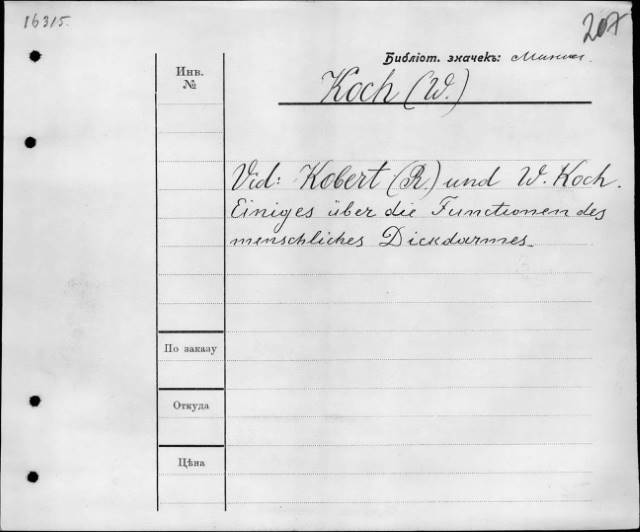 16315.
207
Библіот. значекъ:
Инв.
№
Koch (W.)
Vid: Kobert (R.) und W. Koch.
Einiges über die Functionen des
menschliches Dickdarmes.
По заказу
Откуда
Цѣна